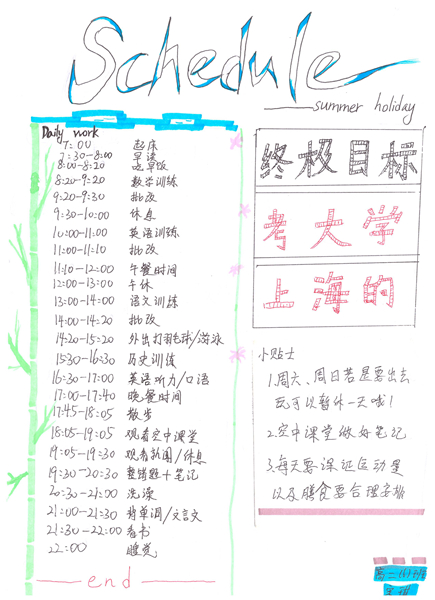 Schedule
summer holiday
Daily work
7:00 起床
7:30-8:00 早读
8:00-8:20 吃早饭
8:20-9:20 数学训练
9:20-9:30 批改
9:30-10:00 休息
10:00-11:00 英语训练
11:00-11:10 批改
11:10-12:00 午餐时间
12:00-13:00 午休
13:00-14:00 语文训练
14:00-14:20 批改
14:20-15:20 外出打羽毛球/游泳
15:30-16:30 历史训练
16:30-17:00 英语听力/口语
17:00-17:40 晚餐时间
17:45-18:05 散步
18:05-19:05 观看空中课堂
19:05-19:30 观看新闻/休息
19:30-20:30 整错题+笔记
20:30-21:00 洗澡
21:00-21:30 背单词/文言文
21:30-22:00 看书
22:00 睡觉
end
终极目标
考大学
上海的
小贴士
1.周六、周日若是要出去
玩可以暂休一天哦！
2.空中课堂做好笔记
3.每天要保证运动量
以及膳食要合理安排
高二